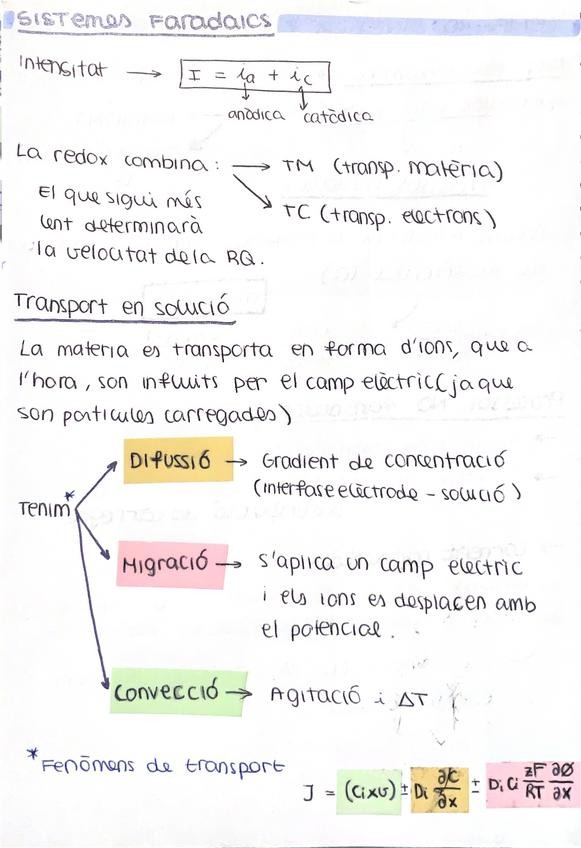 SISTEMES FARADAICS
Intensitat → I = ia + ic
anòdica catòdica
La redox combina: → TM (transp. matèria)
El que sigui més → TC (transp. electrons)
lent determinarà
la velocitat de la RQ.
Transport en solució
La materia es transporta en forma d'ions, que a
l'hora, son influits per el camp elèctric (ja que
son particules carregades)
DIFUSSIÓ → Gradient de concentració
(interfase elèctrode - solució)
Tenim*
MIGRACIÓ → S'aplica un camp electric
i els ions es desplacen amb
el potencial.
CONVECCIÓ → Agitació i ΔT
*Fenòmens de transport
J = (Ci x v) ± Di ∂C/∂x ± Di Ci zF/RT ∂Ø/∂x